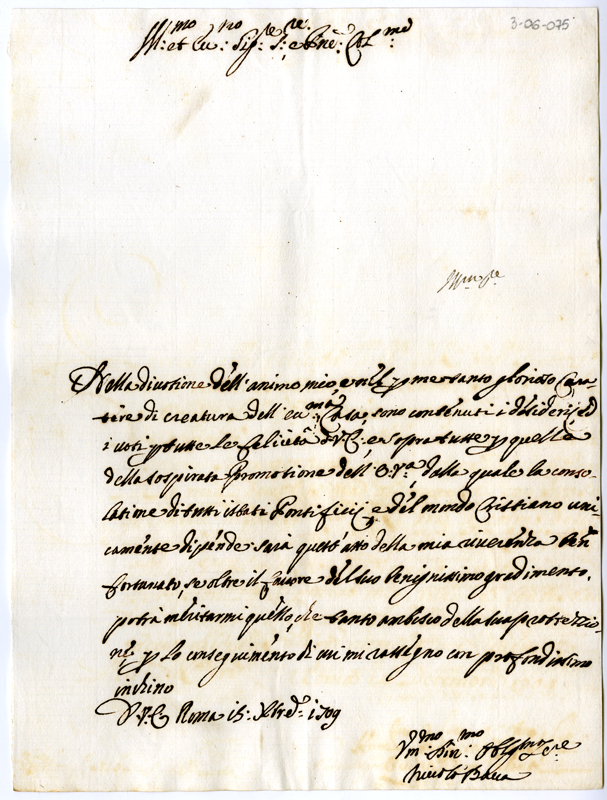 3-06-075
Ill:mo et Ecc:mo Sig:re S:re e Pne Col:mo
Nella divotione dell'animo mio, e nel p me santo glorioso Carat-
tere di creatura dell'ecc:ma Casa, sono contenuti i desiderij, ed
i voti p tutte le felicità d V.E: e sopra tutte p quella
della sospirata Promotione dell' E.Va, dalla quale la conso-
latione di tutti i stati Pontificij, e del mondo Cristiano uni
camente dipende sarà quest'atto della mia riverenza ben
fortunato, se oltre il favore del suo benignissimo gradimento,
potrà meritarmi quello, che tanto ambisco della sua protettio-
ne, p lo conseguimento di cui mi rassegno con profondissimo
inchino
D V.E Roma 15: Xbre 1709
Vm:mo Div:mo Oblig:mo Sre
Nicolò